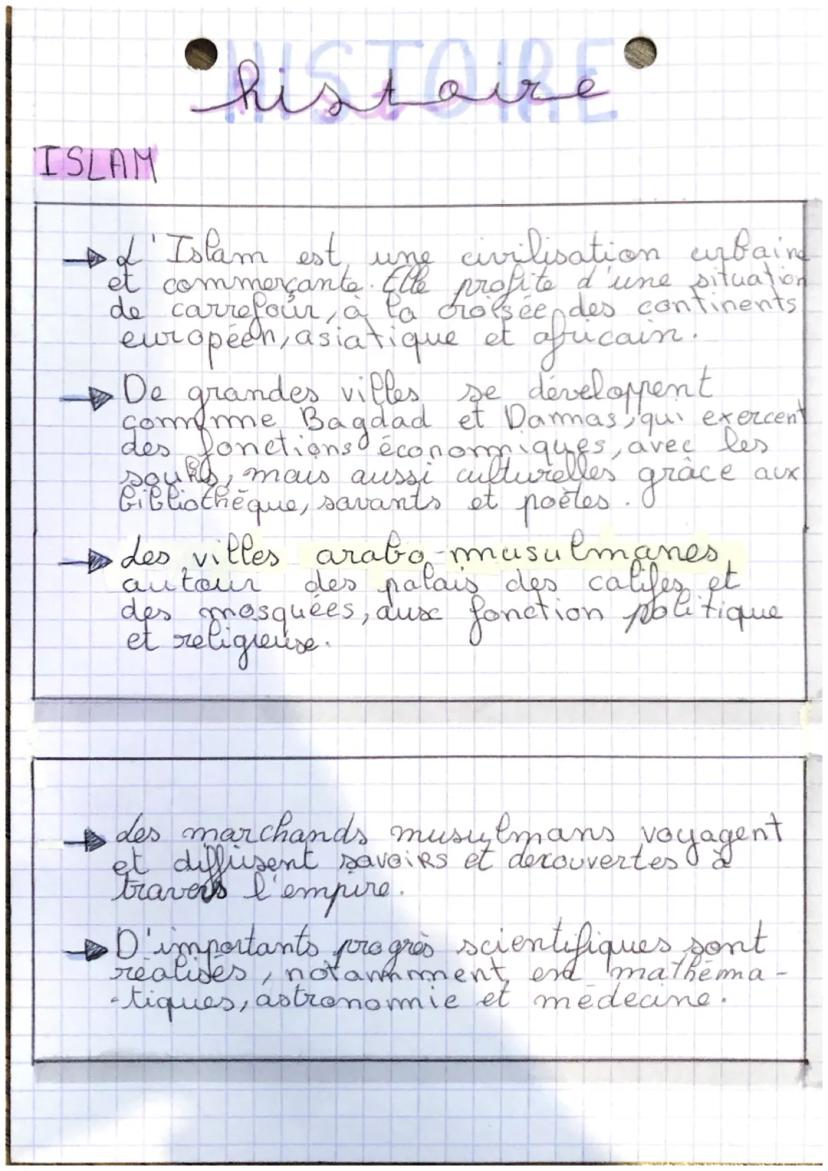 HISTOIRE
histoire
ISLAM
→ L'Islam est une civilisation urbaine
et commerçante. Elle profite d'une situation
de carrefour, à la croisée des continents
européen, asiatique et africain.
→ De grandes villes se développent
comme Bagdad et Damas, qui exercent
des fonctions économiques, avec les
souks, mais aussi culturelles grâce aux
bibliothèque, savants et poètes.
→ des villes arabo-musulmanes
autour des palais des califes et
des mosquées, aux fonction politique
et religieuse.
→ des marchands musulmans voyagent
et diffusent savoirs et découvertes à
travers l'empire.
→ D'importants progrès scientifiques sont
réalisés, notamment en mathéma-
-tiques, astronomie et médecine.